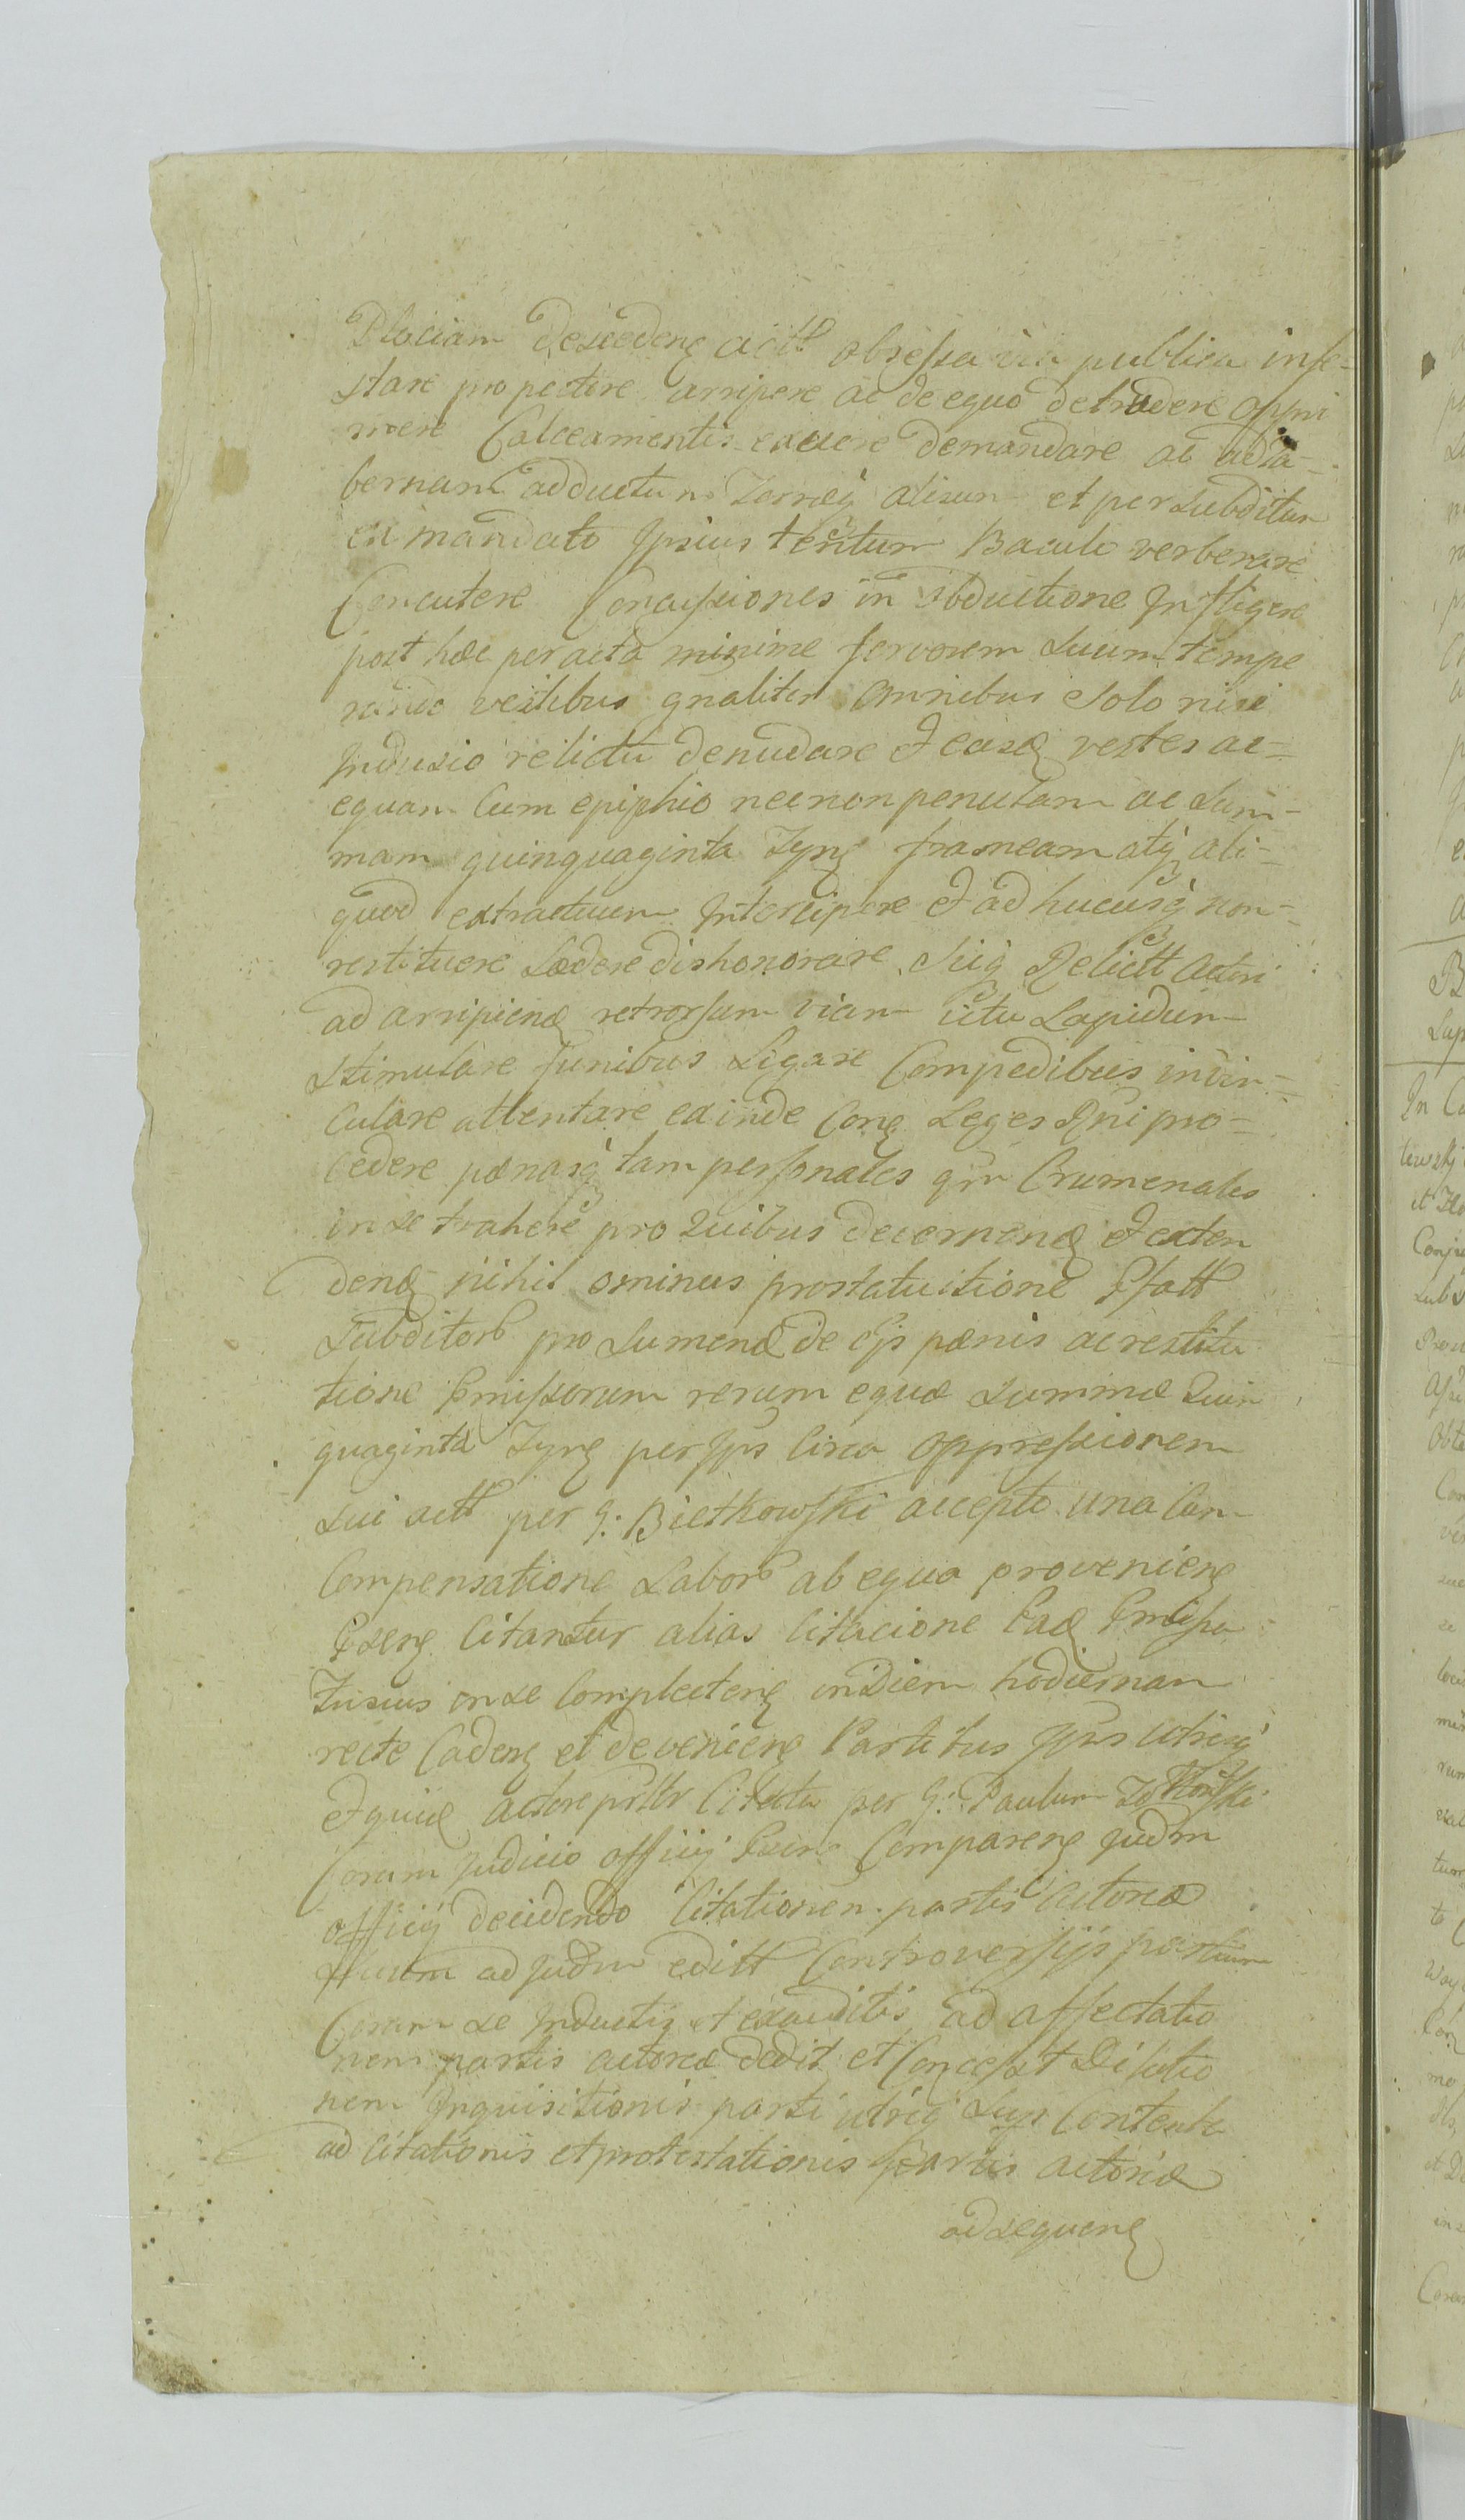 Plociam descedens actt obsessa via publica infe-
stare pro pectore arripere ac de equo detrudere oppri
mere Calceamentis exuere demandare ac ad ta-
bernam adductum Terraeq alisum et per Subditum
ex mandato Ipsius tentum Baculo verberare
Concutere Concussiones in obductione Infligere
post hac peracta minime fervorem Suum tempe
rando vestibus gnaliter omnibus Solo nisi
Indusio relicto denudare Jeasq vestes ac-
equam Cum epiphio necnon penulam ac Sum-
mam quinquaginta Tynf frameam atq ali-
quod extractuum Intercipere Et ad hucusq non-
restituere Lædere dishonorare Siiq Relictt Actori
ad arripiend retrorsum viam ictu Lapidum
Stimulare funibus Ligare Compedibus invin-
culare attentare exinde Cong Leges Rni pro-
cedere pænasq tam personales qm Crumenales
in se trahere pro quibus decernend Et exten
dend nihil ominus prostatuitione Psatt
Subditorb pro Sumend de eys pænis ac restitu
tione Pmissorum rerum equæ Summæ Quin
quaginta Tynf per Ips Circa oppressionem
Sui actt per G: Bietkowski accepto una Cum
Compensatione Laborb ab equa provenieng
Pseng Citantur alias Citacione Ead Pmissa
fusius in se Complecteng in Diem hodiernam
recte Cadeng et devenieng Partibus Ipsis Utrisq
Et quid actore prstr Citato per G: Paulum
Coram Judicio officij Psein Compareng Judm
officij decidendo Citationem partis actoreæ
ad Judm editt Controversijs partium
Coram se Inductis et exauditis ad affectatio
nem partis actoreæ dedit et Concessit Dilatio
nem Inquisitionis parti utriq Sup Contenta
ad Citationis et protestationis Partis actoreæ
ad sequeng